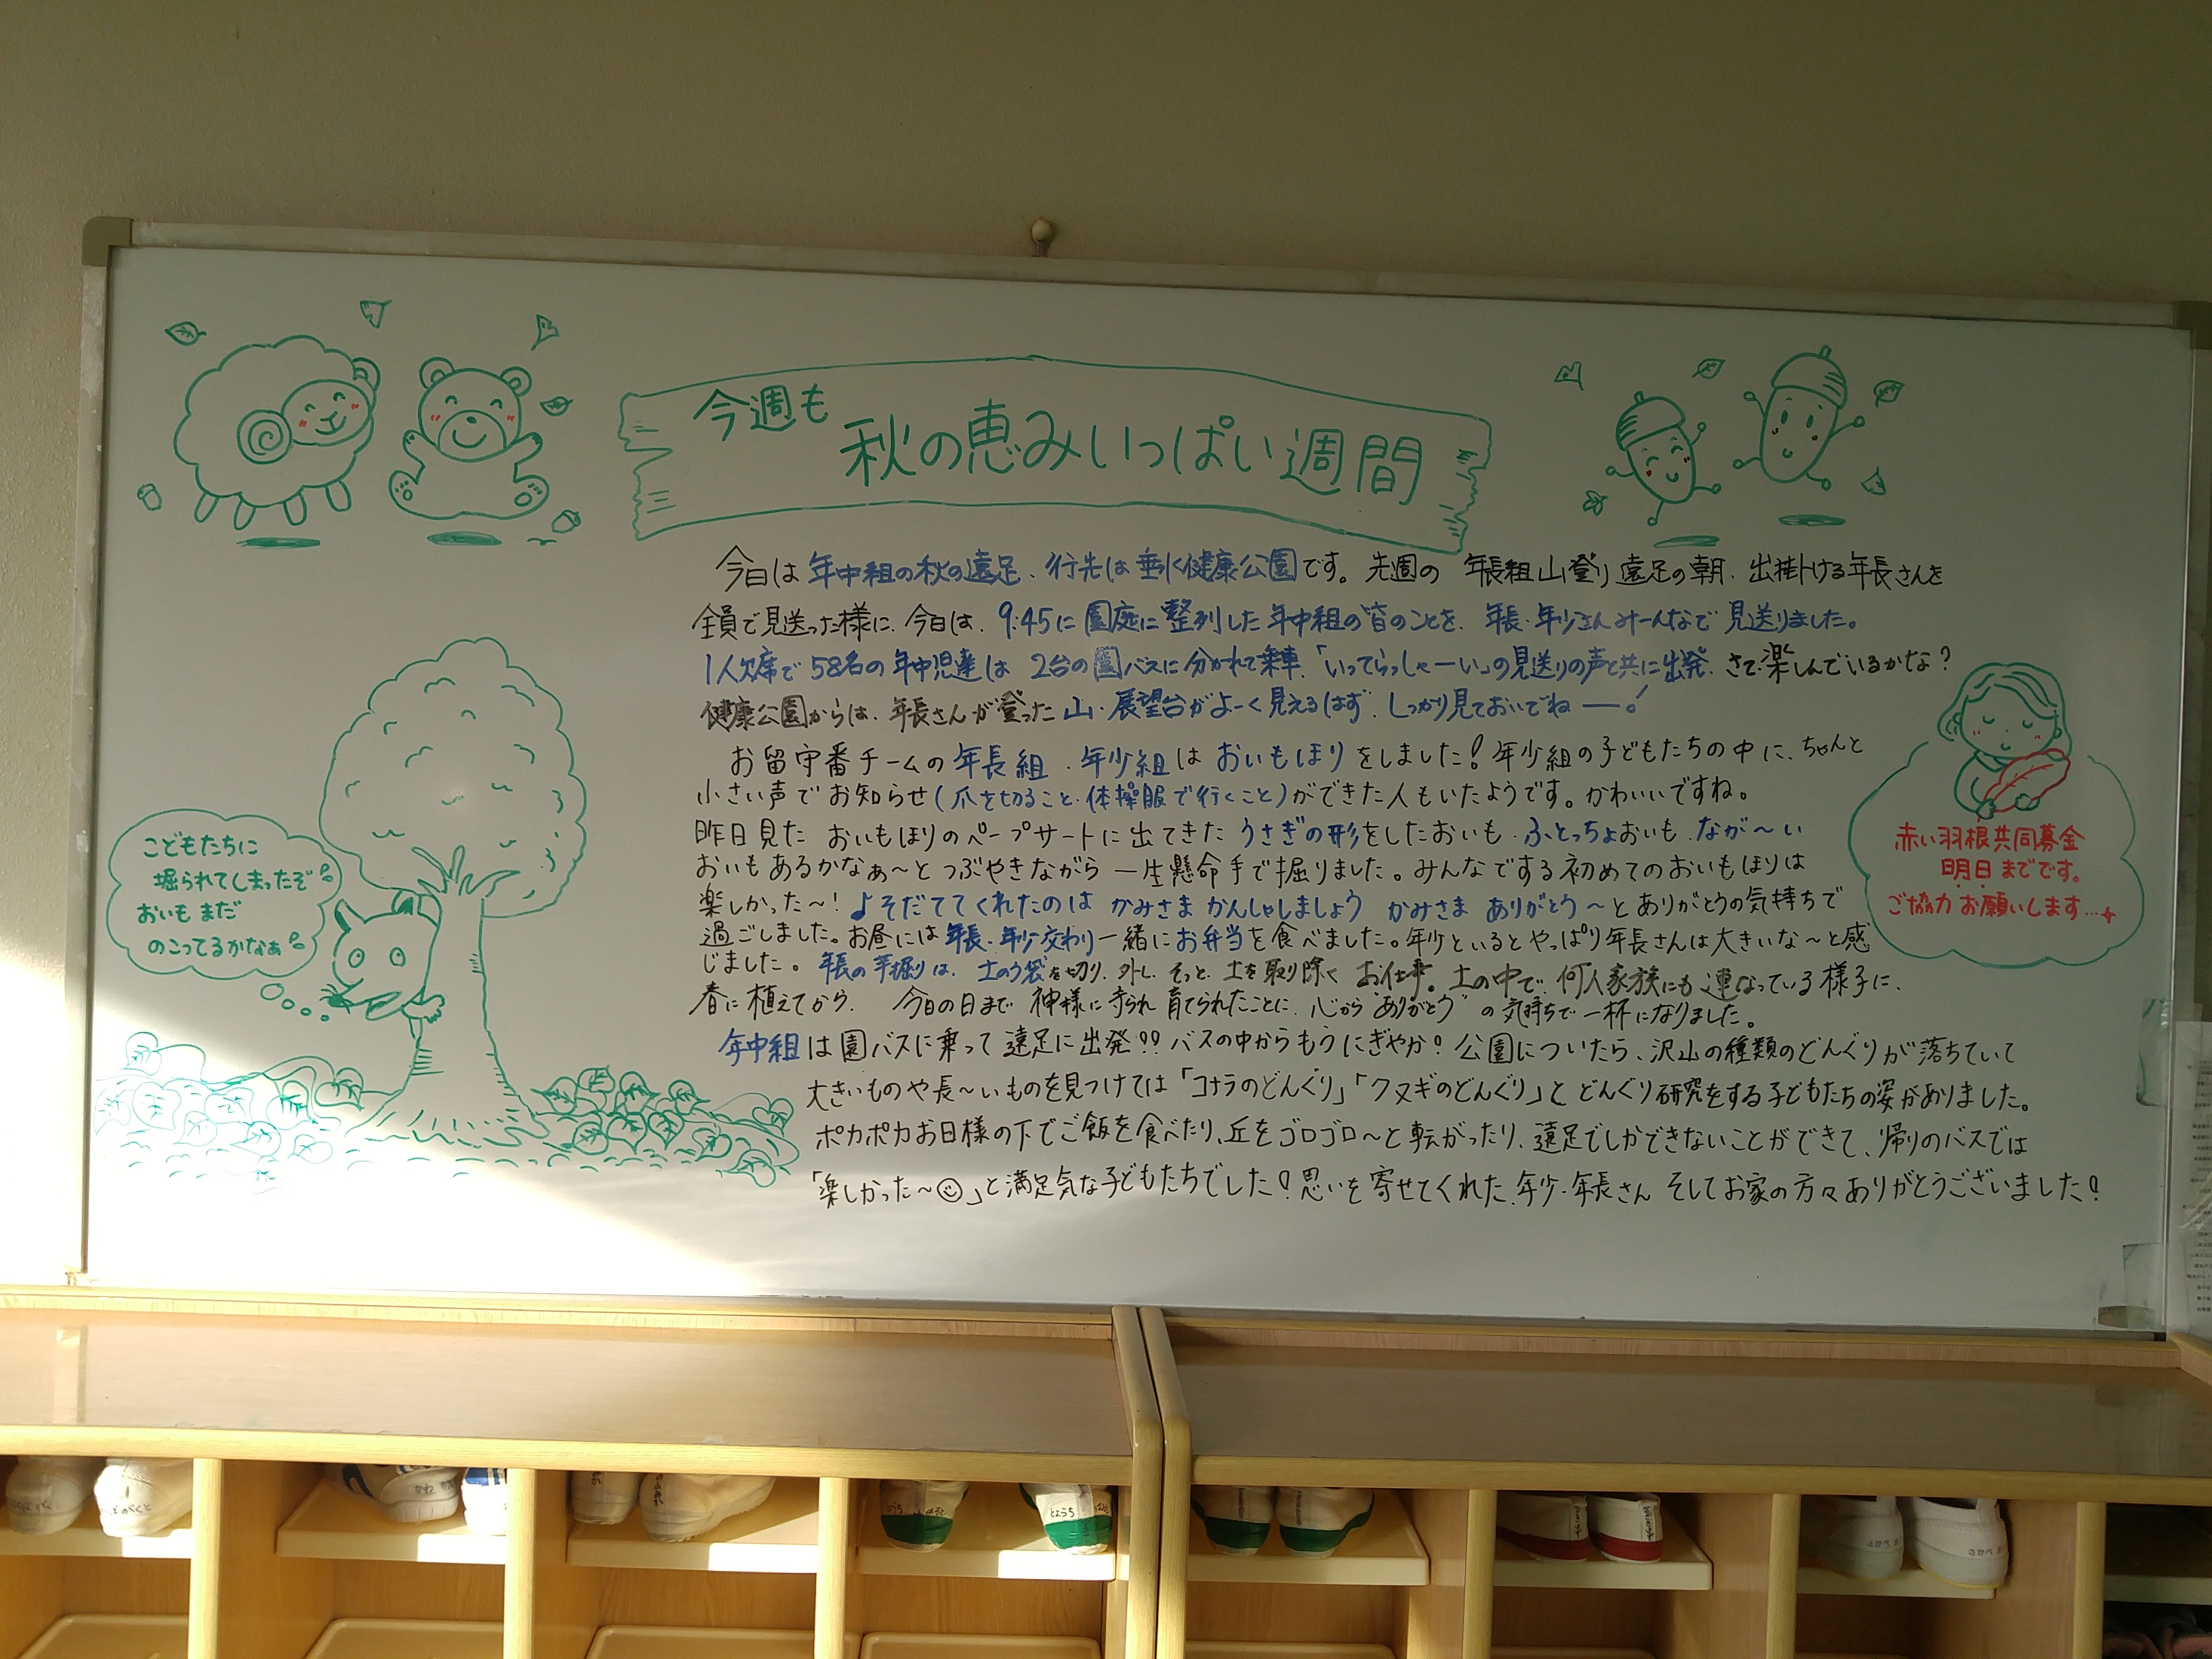 今週も
秋の恵みいっぱい週間
今日は年中組の秋の遠足、行先は垂水健康公園です。先週の 年長組山登り遠足の朝、出掛ける年長さんを
全員で見送った様に、今日は、9:45に園庭に整列した年中組の皆のことを、年長・年少さんみーんなで見送りました。
1人欠席で58名の年中児達は 2台の園バスに分かれて乗車、「いってらっしゃーい」の見送りの声と共に出発、さて楽しんでいるかな?
健康公園からは、年長さんが登った山・展望台がよーく見えるはず、しっかり見ておいでねー!
お留守番チームの年長組、年少組はおいもほりをしました!年少組の子どもたちの中に、ちゃんと
小さい声でお知らせ(爪を切ること・体操服で行くこと)ができた人もいたようです。かわいいですね。
昨日見た おいもほりのペープサートに出てきたうさぎの形をしたおいも、ふとっちょおいも、なが〜い
おいもあるかなぁ〜とつぶやきながら一生懸命手で掘りました。みんなでする初めてのおいもほりは
楽しかった〜!♪そだててくれたのは かみさま かんしゃしましょう かみさま ありがとう〜とありがとうの気持ちで
過ごしました。お昼には年長・年少交わり一緒にお弁当を食べました。年少といるとやっぱり年長さんは大きいな〜と感
じました。年長の芋掘りは、土のう袋を切り、外し、そっと、土を取り除くお仕事。土の中で、何人家族にも連なっている様子に、
春に植えてから、今日の日まで神様に守られ育てられたことに、心から"ありがとう"の気持ちで一杯になりました。
年中組は園バスに乗って遠足に出発!!バスの中からもうにぎやか!公園についたら、沢山の種類のどんぐりが落ちていて
大きいものや長〜いものを見つけては「コナラのどんぐり」「クヌギのどんぐり」とどんぐり研究をする子どもたちの姿がありました。
ポカポカお日様の下でご飯を食べたり、丘をゴロゴロ〜と転がったり、遠足でしかできないことができて、帰りのバスでは
「楽しかった〜☺」と満足気な子どもたちでした!思いを寄せてくれた、年少・年長さん そしてお家の方々ありがとうございました!
こどもたちに
掘られてしまったぞ
おいも まだ
のこってるかなぁ
赤い羽根共同募金
明日までです。
ご協力お願いします…
とょうち